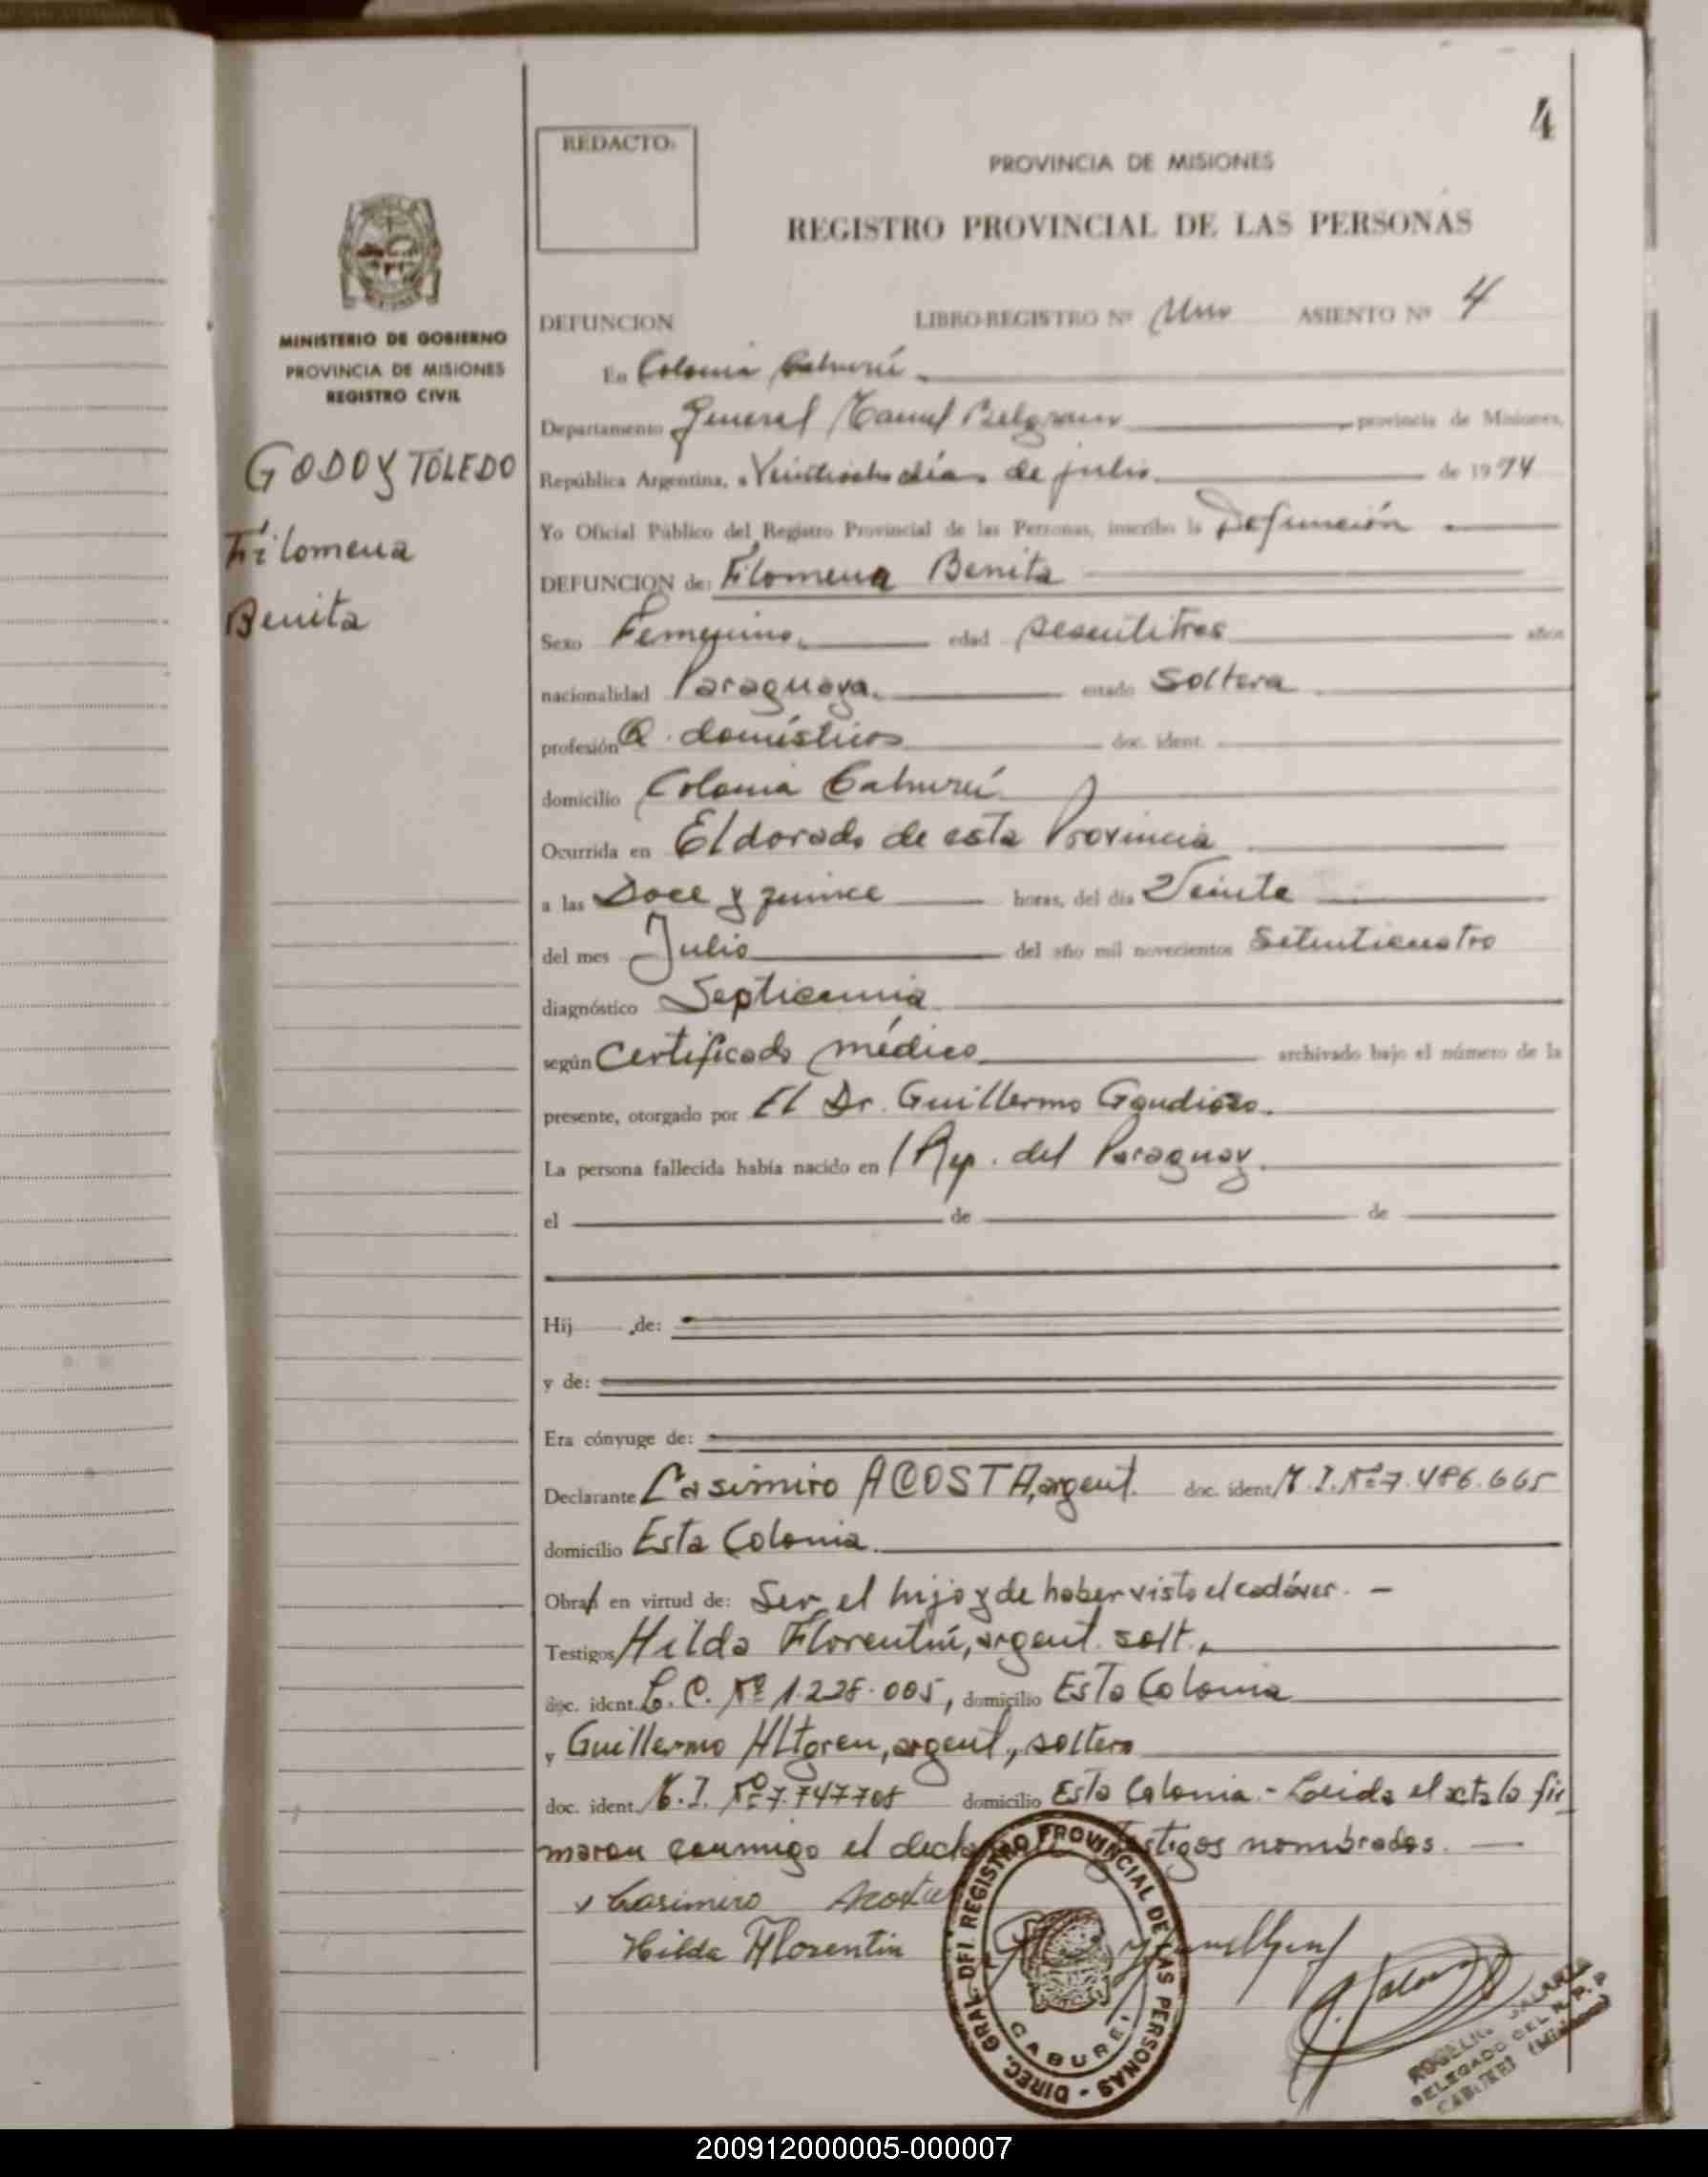 4
REDACTO:
PROVINCIA DE MISIONES
REGISTRO PROVINCIAL DE LAS PERSONAS
MINISTERIO DE GOBIERNO
PROVINCIA DE MISIONES
REGISTRO CIVIL
GODOY TOLEDO
Filomena
Benita
DEFUNCION LIBRO-REGISTRO Nº Uno ASIENTO Nº 4
En Colonia Cabureí
Departamento General Manuel Belgrano provincia de Misiones,
República Argentina, a Veintiocho días de julio de 1974
Yo Oficial Público del Registro Provincial de las Personas, inscribo la Defunción
DEFUNCION de: Filomena Benita
Sexo Femenino edad sesentitres años
nacionalidad Paraguaya. estado Soltera
profesión Q. domésticos doc. ident.
domicilio Colonia Cabureí
Ocurrida en Eldorado de esta Provincia
a las Doce y quince horas, del día Veinte
del mes Julio del año mil novecientos setenticuatro
diagnóstico Septicemia
según Certificado médico archivado bajo el número de la
presente, otorgado por El Dr. Guillermo Gaudioso.
La persona fallecida había nacido en Rep. del Paraguay.
el de de
Hij de:
y de:
Era cónyuge de:
Declarante Casimiro ACOSTA, argent. doc. ident. M.I. Nº 7.486.665
domicilio Esta Colonia.
Obra en virtud de: Ser el hijo y de haber visto el cadáver. -
Testigos Hilda Florentín, argent. solt.,
doc. ident. L.C. Nº 1.228.005, domicilio Esta Colonia
y Guillermo Altgren, argent., soltero
doc. ident. M.I. Nº 7.747.708 domicilio Esta Colonia.- Leida el acta la fir
maron conmigo el testigos nombrados.
Casimiro Acosta
Hilda Florentin
DIREC. GRAL. DEL REGISTRO PROVINCIAL DE LAS PERSONAS - CABUREI
DELEGADO DEL R. P. P.
CABUREI (Misiones)
200912000005-000007